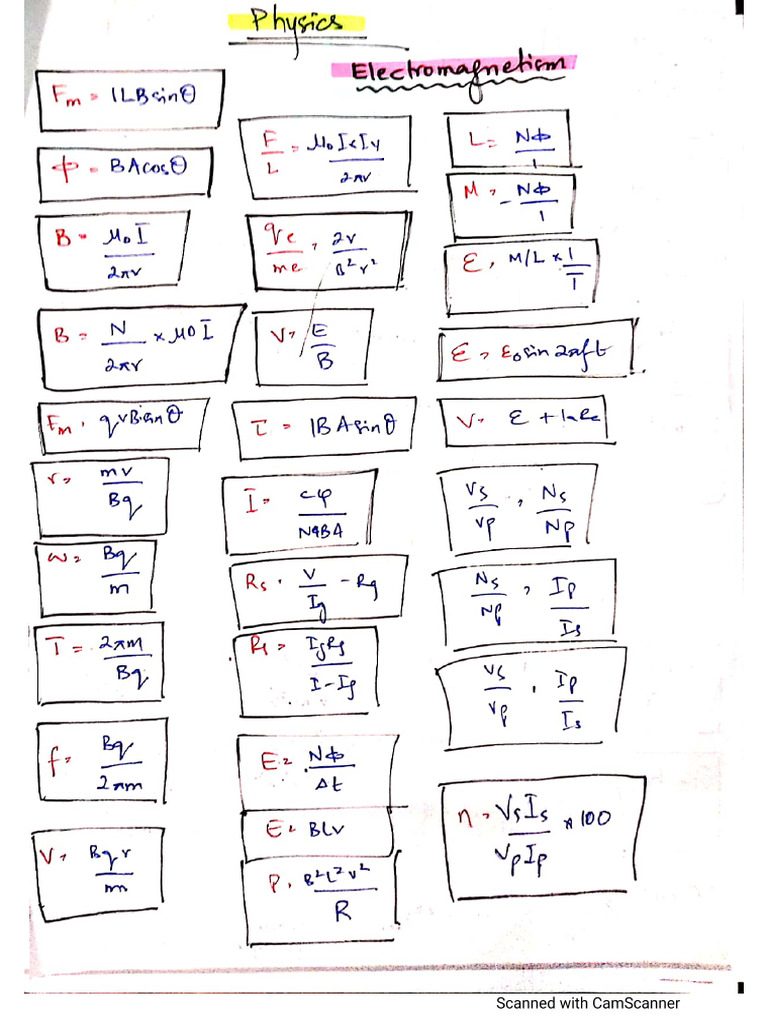 Physics
Electromagnetism
Fm = ILB sinθ
ϕ = BA cosθ
B = μ0 I / 2πr
B = N / 2πr × μ0 I
Fm = qvB sinθ
r = mv / Bq
ω = Bq / m
T = 2πm / Bq
f = Bq / 2πm
V = Bqr / m
F / L = μ0 I1 I2 / 2πr
qe / me = 2v / B²r²
V = E / B
τ = IBA sinθ
I = cφ / NBA
Rs = V / Ig - Rg
Rs = Ig Rg / I - Ig
E = Nϕ / Δt
E = BLv
P = B²L²v² / R
L = Nϕ / I
M = - Nϕ / I
ε = M/L × I / T
ε = ε0 sin 2πft
V = ε + Ia Ra
Vs / Vp = Ns / Np
Ns / Np = Ip / Is
Vs / Vp = Ip / Is
η = Vs Is / Vp Ip × 100
Scanned with CamScanner